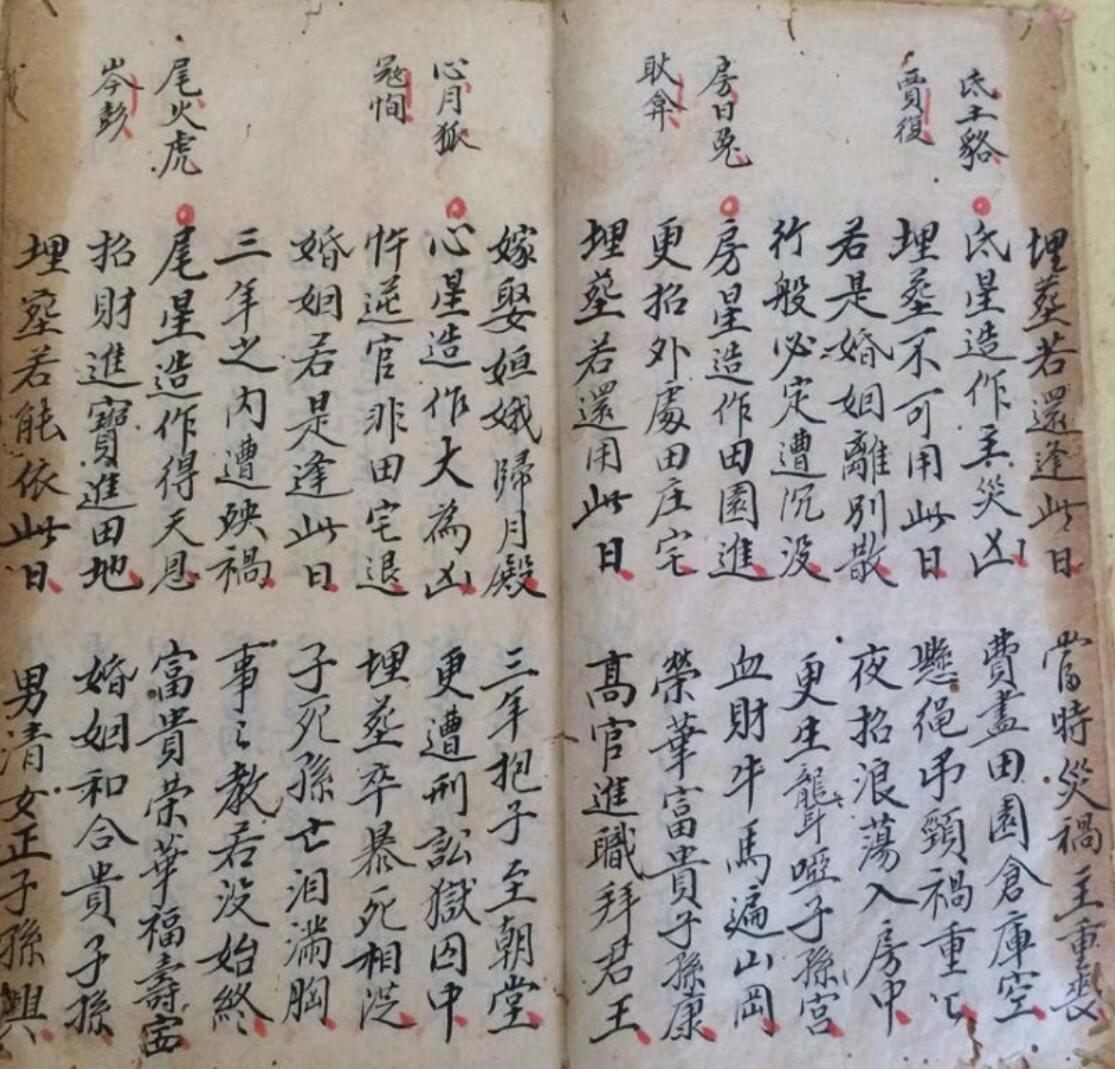 埋葬若還逢此日 當時災禍主重喪
氐土貉
氐星造作主災凶 費盡田園倉庫空
賈復
埋葬不可用此日 懸繩吊頸禍重匕
若是婚姻離別散 夜招浪蕩入房中
行般必定遭沉没 更生聾啞子孫宮
房日兎
房星造作田園進 血財牛馬遍山岡
耿弇
更招外處田庄宅 榮華富貴子孫康
埋葬若還用此日 高官進職拜君王
嫁娶姮娥歸月殿 三年抱子至朝堂
心月狐
心星造作大為凶 更遭刑訟獄囚中
寇恂
忤逆官非田宅退 埋葬卒暴死相從
婚姻若是逢此日 子死孫亡泪滿胸
三年之内遭殃禍 事々教若没始終
尾火虎
尾星造作得天恩 富貴荣華福壽寧
岑彭
招財進寶進田地 婚姻和合貴子孫
埋葬若能依此日 男清女正子孫興